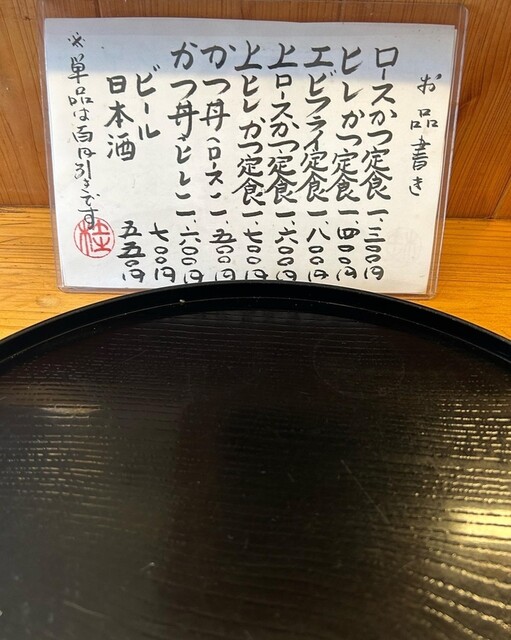 お品書き
ロースかつ定食 一、三〇〇円
ヒレかつ定食 一、四〇〇円
エビフライ定食 一、八〇〇円
上ロースかつ定食 一、六〇〇円
上ヒレかつ定食 一、七〇〇円
かつ丼(ロース) 一、五〇〇円
かつ丼(ヒレ) 一、六〇〇円
ビール 七〇〇円
日本酒 五五〇円
※単品は百円引きです
桂